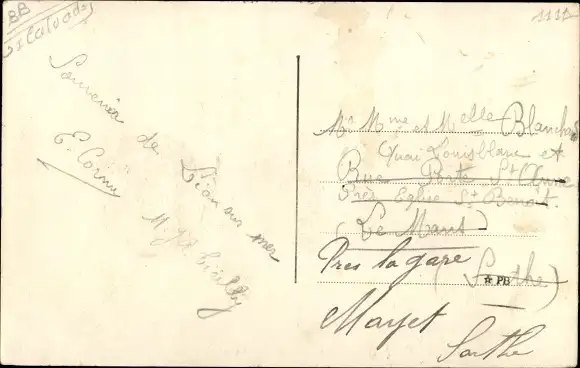 BB
Calvados
1112
Souvenir de Lion sur mer
E. Cornu
Mr Mme et Melle Blanchard
Quai Louis blanc et
Rue Porte Ste Anne
Près Eglise St Benoit.
(Le Mans)
Près la gare
(Sarthe)
PB
Mayet
Sarthe